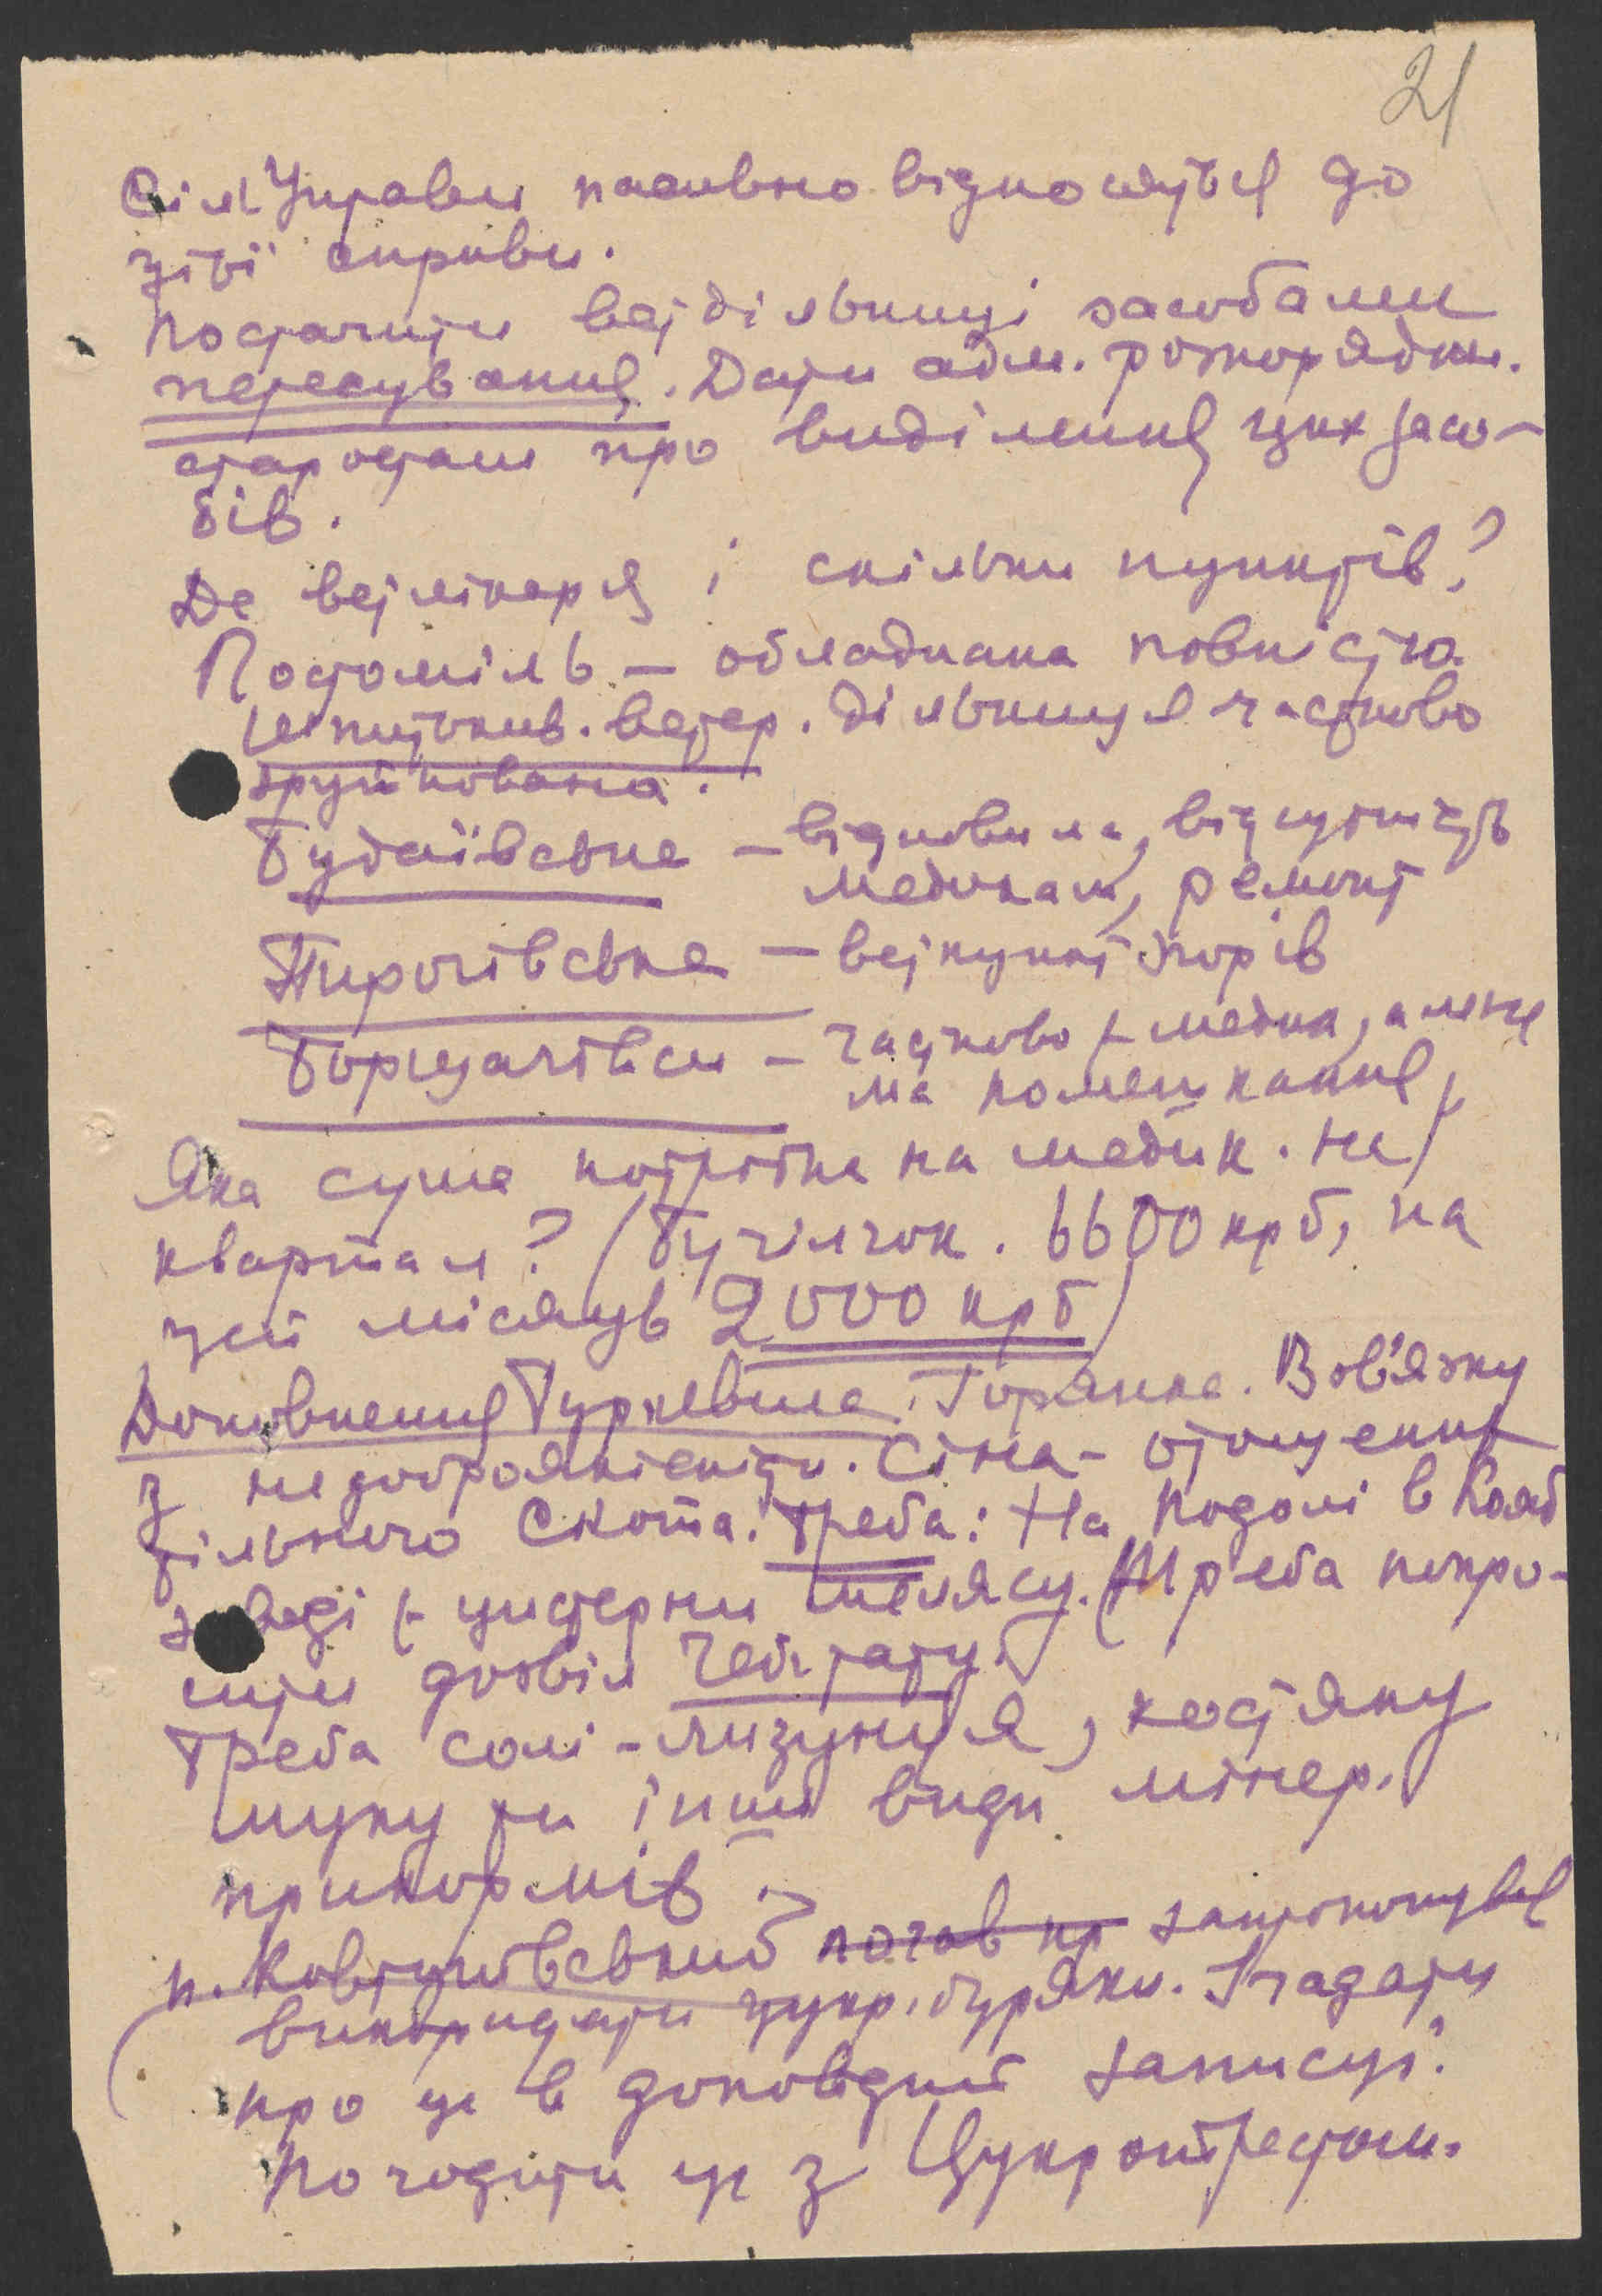 21
Сіл. Управи пасивно відносяться до
цієї справи.
Постачити ветдільниці засобами
пересування. Дати адм. розпорядж.
старостам про виділення цих засо-
бів.
Де ветлікаря і скільки пунктів?
Постоміль – обладнана повністю.
Шпитьків. ветер. дільниця частково
зруйнована.
Будаївська – відновила, відсутність
медикам, ремонт
Пирогівська – ветпункт згорів
Борщагівсь – частково є медик, але не
ма помешкання,
Яка сума потрібна на медик. на
квартал? (Бухгалчок. 6600 крб, на
цей місяць 2000 крб)
Доповнення Гуркевича. Горянка. В зв'язку
з недоброякісніст. сіна – отощення
тільного скота. Треба: На Подолі в
заводі є цистерни меляси. (Треба попро-
сити дозвіл
Треба солі-лизунця, костяну
муку та інші види мінер.
прикормів.
п. Ковтуновський почав пр запропонував
використати цукр. буряки. Згадати
про це в доповідній записці.
Погодити це з Цукротрестом.